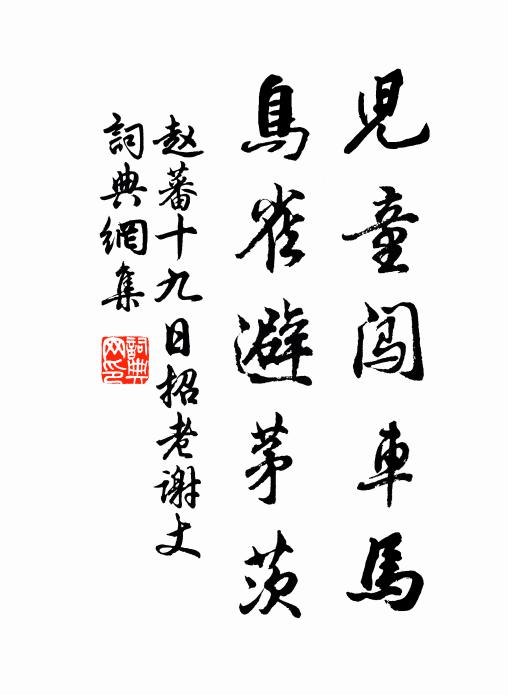 兒童闖車馬
鳥雀避茅茨
赵蕃十九日招老谢丈
詞典網集